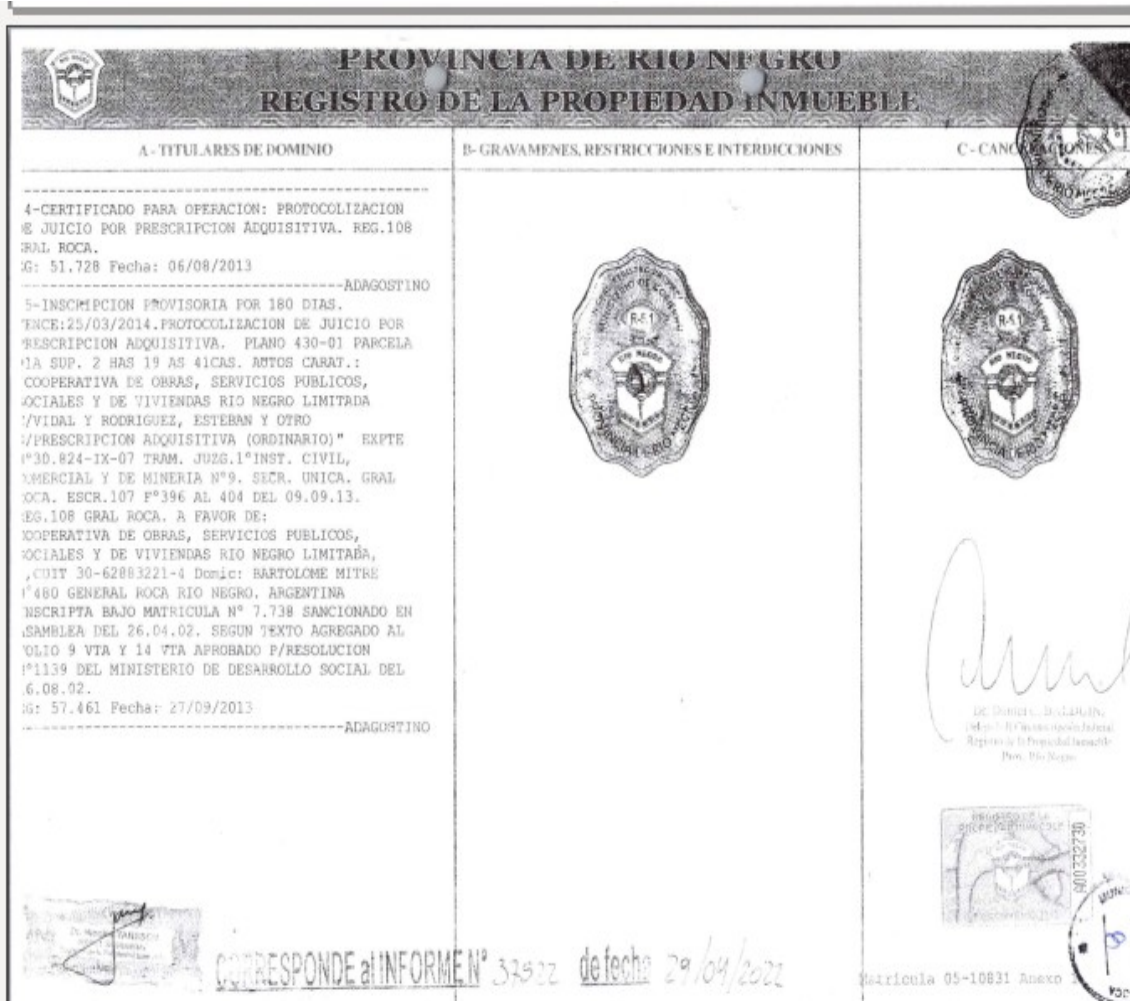 PROVINCIA DE RIO NEGRO
REGISTRO DE LA PROPIEDAD INMUEBLE
A - TITULARES DE DOMINIO
B- GRAVAMENES, RESTRICCIONES E INTERDICCIONES
C - CANCELACIONES
4-CERTIFICADO PARA OPERACION: PROTOCOLIZACION
E JUICIO POR PRESCRIPCION ADQUISITIVA. REG.108
RAL ROCA.
G: 51.728 Fecha: 06/08/2013
ADAGOSTINO
5-INSCRIPCION PROVISORIA POR 180 DIAS.
ENCE:25/03/2014.PROTOCOLIZACION DE JUICIO POR
RESCRIPCION ADQUISITIVA. PLANO 430-01 PARCELA
1A SUP. 2 HAS 19 AS 41CAS. AUTOS CARAT.:
COOPERATIVA DE OBRAS, SERVICIOS PUBLICOS,
OCIALES Y DE VIVIENDAS RIO NEGRO LIMITADA
/VIDAL Y RODRIGUEZ, ESTEBAN Y OTRO
/PRESCRIPCION ADQUISITIVA (ORDINARIO)" EXPTE
N°30.824-IX-07 TRAM. JUZG.1°INST. CIVIL,
OMERCIAL Y DE MINERIA N°9. SECR. UNICA. GRAL
OCA. ESCR.107 F°396 AL 404 DEL 09.09.13.
EG.108 GRAL ROCA. A FAVOR DE:
COOPERATIVA DE OBRAS, SERVICIOS PUBLICOS,
OCIALES Y DE VIVIENDAS RIO NEGRO LIMITADA,
,CUIT 30-62883221-4 Domic: BARTOLOME MITRE
N°480 GENERAL ROCA RIO NEGRO. ARGENTINA
NSCRIPTA BAJO MATRICULA N° 7.738 SANCIONADO EN
SAMBLEA DEL 26.04.02. SEGUN TEXTO AGREGADO AL
OLIO 9 VTA Y 14 VTA APROBADO P/RESOLUCION
N°1139 DEL MINISTERIO DE DESARROLLO SOCIAL DEL
6.08.02.
G: 57.461 Fecha: 27/09/2013
ADAGOSTINO
R-51
RIO NEGRO
R-51
RIO NEGRO
Registro de la Propiedad Inmueble
Prov. Río Negro
REGISTRO DE LA
PROPIEDAD INMUEBLE
A00332730
CORRESPONDE al INFORME N° 37922 de fecha 29/04/2022
Matricula 05-10831 Anexo